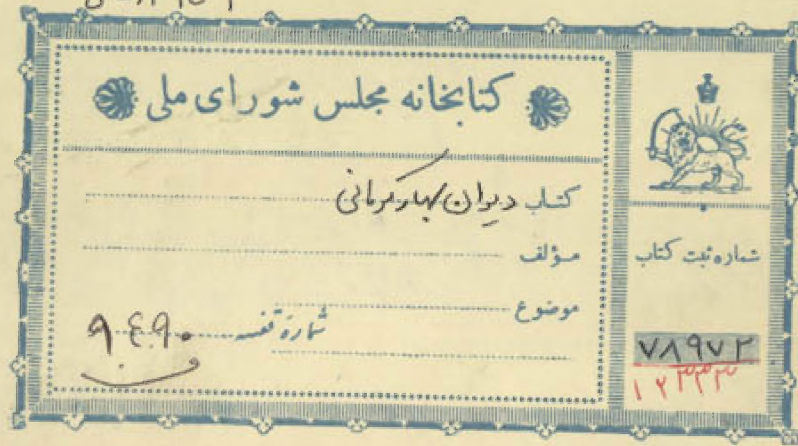 کتابخانه مجلس شورای ملی
کتاب دیوان بهار کرمانی
مؤلف
موضوع
شماره قفسه ۹۴۹۰
شماره ثبت کتاب
۷۸۹۷۲
۱۲۳۳۳